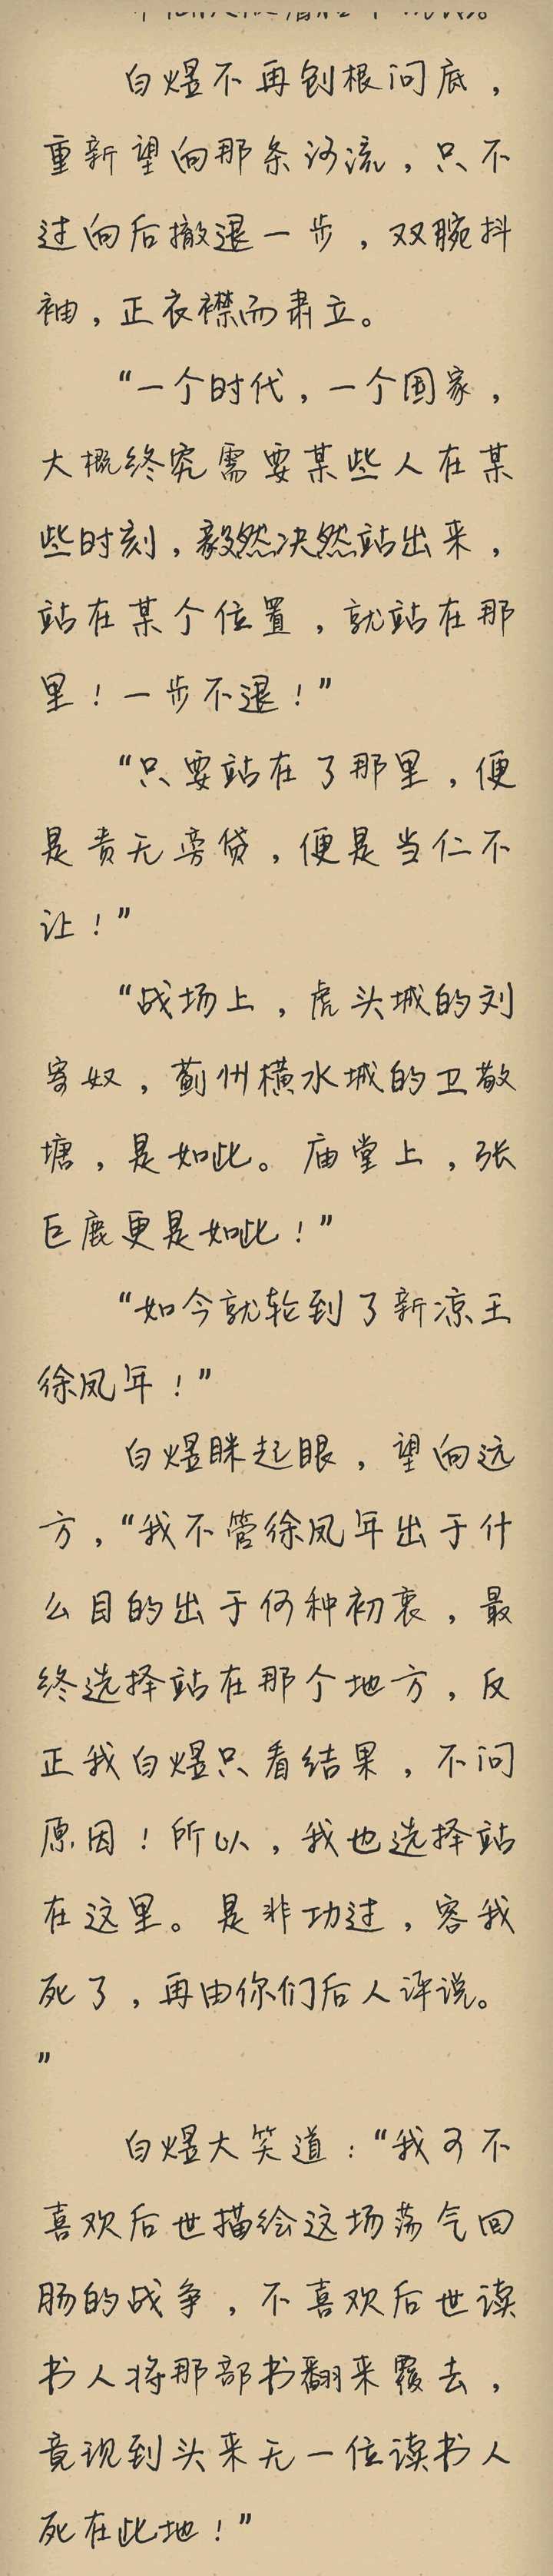 白煜不再刨根问底，
重新望向那条河流，只不
过向后撤退一步，双腕抖
袖，正衣襟而肃立。
“一个时代，一个国家，
大概终究需要某些人在某
些时刻，毅然决然站出来，
站在某个位置，就站在那
里！一步不退！”
“只要站在了那里，便
是责无旁贷，便是当仁不
让！”
“战场上，虎头城的刘
寄奴，蓟州横水城的卫敬
塘，是如此。庙堂上，张
巨鹿更是如此！”
“如今就轮到了新凉王
徐凤年！”
白煜眯起眼，望向远
方，“我不管徐凤年出于什
么目的出于何种初衷，最
终选择站在那个地方，反
正我白煜只看结果，不问
原因！所以，我也选择站
在这里。是非功过，容我
死了，再由你们后人评说。
”
白煜大笑道：“我可不
喜欢后世描绘这场荡气回
肠的战争，不喜欢后世读
书人将那部书翻来覆去，
竟现到头来无一位读书人
死在此地！”